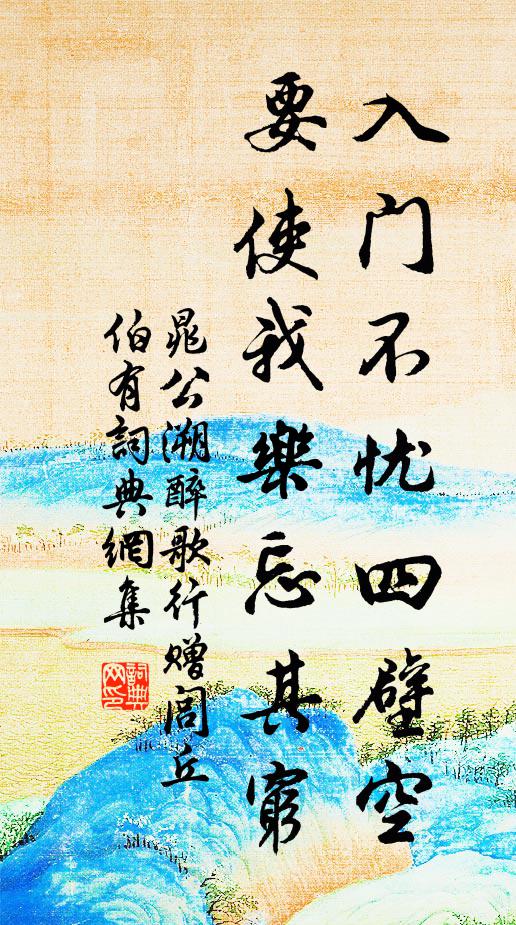 入门不忧四壁空
要使我樂忘其窮
晁公溯醉歌行赠閭丘
伯有詞典網集
詞典网印